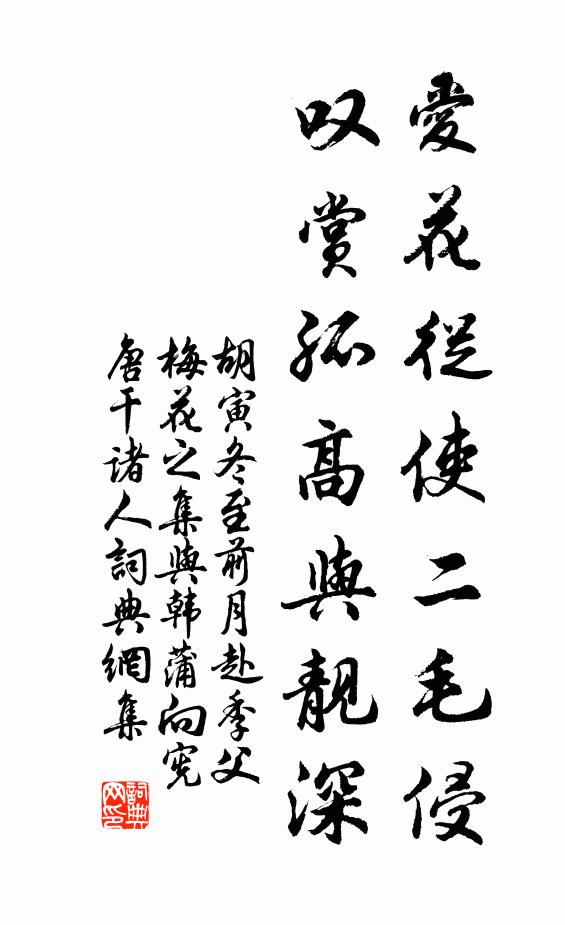 愛花從使二毛侵
叹賞孤高與靚深
胡寅冬至前月赴季父
梅花之集與韩蒲向憲
唐干諸人詞典網集
詞典
网印